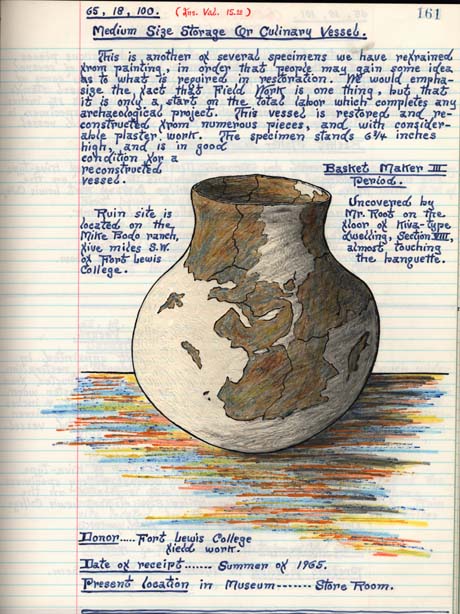 65, 18, 100. (Ins. Val. 15.00)
161
Medium Size Storage Or Culinary Vessel.
This is another of several specimens we have refrained
from painting, in order that people may gain some idea
as to what is required in restoration. We would empha-
size the fact that Field Work is one thing, but that
it is only a start on the total labor which completes any
archaeological project. This vessel is restored and re-
constructed from numerous pieces, and with consider-
able plaster work. The specimen stands 6¾ inches
high, and is in good
condition for a
reconstructed
vessel.
Basket Maker III
Period.
Ruin site is
located on the
Mike Bodo ranch,
five miles S.W.
of Fort Lewis
College.
Uncovered by
Mr. Root on the
floor of Kiva-type
dwelling, Section VIII,
almost touching
the banquette.
Donor..... Fort Lewis College
field work.
Date of receipt....... Summer of 1965.
Present location in Museum------- Store Room.